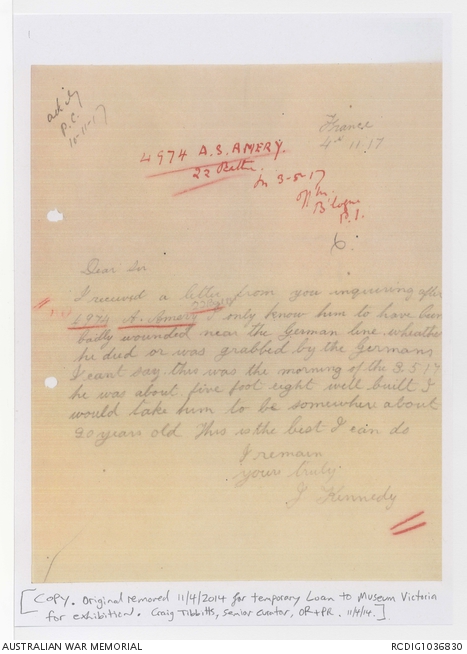 ack by
P.C.
15-11-17
France
4th 11.17
4974 A.S. AMERY.
22 Battn.
M 3-5-17
Off. M.
B'logne
P.I.
6.
Dear Sir
I received a letter from you inquireing after
4974 A. Amery I only know him to have been
badly wounded near the German line. wheather
he died or was grabbed by the Germans
I cant say. this was the morning of the 3.5.17
he was about five foot eight well built I
would take him to be somewhere about
20 years old This is the best I can do
I remain
yours truly.
J Kennedy
[COPY. Original removed 11/4/2014 for temporary Loan to Museum Victoria
for exhibition. Craig Tibbitts, senior curator, OR+PR. 11/4/14.]
AUSTRALIAN WAR MEMORIAL
RCDIG1036830